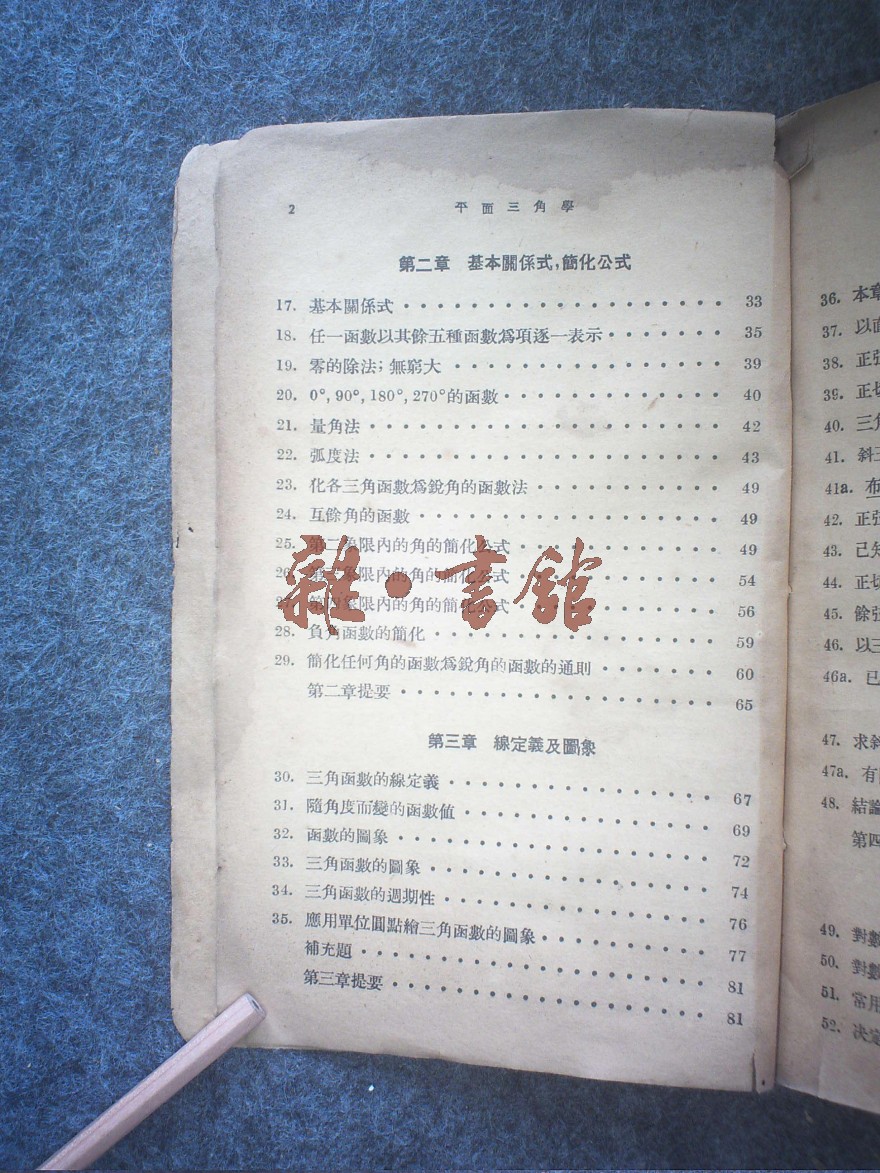 2 平面三角學
第二章 基本關係式,簡化公式
17. 基本關係式 33
18. 任一函數以其餘五種函數爲項逐一表示 35
19. 零的除法；無窮大 39
20. 0°, 90°, 180°, 270°的函數 40
21. 量角法 42
22. 弧度法 43
23. 化各三角函數爲銳角的函數法 49
24. 互餘角的函數 49
25. 第二象限內的角的簡化公式 49
26. 象限內的角的簡化公式 54
27. 第四象限內的角的簡化公式 56
28. 負角函數的簡化 59
29. 簡化任何角的函數爲銳角的函數的通則 60
第二章提要 65
第三章 線定義及圖象
30. 三角函數的線定義 67
31. 隨角度而變的函數値 69
32. 函數的圖象 72
33. 三角函數的圖象 74
34. 三角函數的週期性 76
35. 應用單位圓點繪三角函數的圖象 77
補充題 81
第三章提要 81
雜·書館
36. 本章
37. 以面
38. 正弦
39. 正切
40. 三角
41. 斜三
41a. 布
42. 正弦
43. 已知
44. 正切
45. 餘弦
46. 以三
46a. 已
47. 求斜
47a. 有
48. 結論
第四
49. 對數
50. 對數
51. 常用
52. 決定